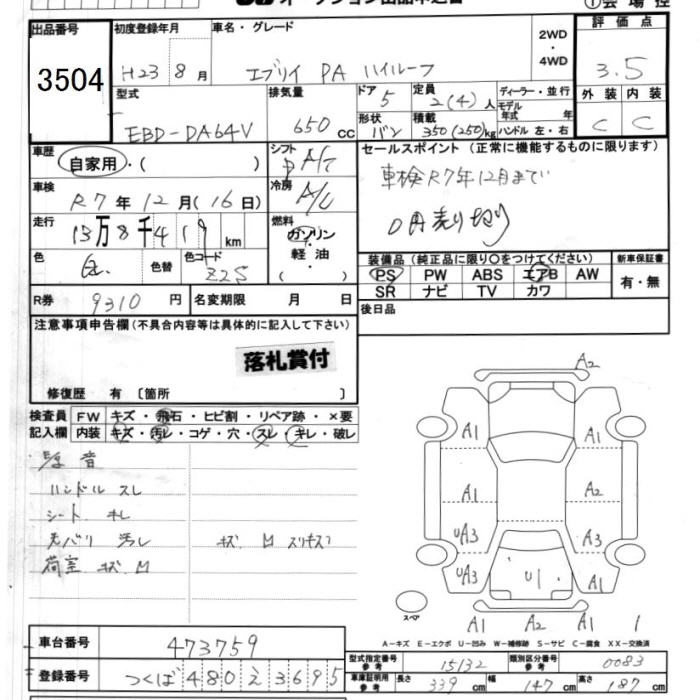 オークション出品申込書
①会場控
出品番号 初度登録年月 車名・グレード 2WD ・ 4WD 評価点
3504 H23 8月 エブリイ PA ハイルーフ 3.5
型式 排気量 ドア 5 定員 2(4)人 ディーラー・並行 外装 内装
モデル年式 年式
EBD-DA64V 650 cc 形状 バン 積載 350(250)kg ハンドル 左・右 C C
車歴 自家用・( ) シフト A/T セールスポイント (正常に機能するものに限ります)
車検 R7年12月(16日) 冷房 A/C 車検R7年12月まで
走行 13万8千419km 燃料 ガソリン・軽油・( ) 0円売り切り
色 白 色替 色コード Z2S 装備品 (純正品に限り○をつけてください) 新車保証書
PS PW ABS エアB AW 有・無
SR ナビ TV カワ
R券 9310円 名変期限 月 日 後日品
注意事項申告欄(不具合内容等は具体的に記入して下さい)
落札賞付
修復歴 有〔箇所 〕
検査員 FW キズ・飛石・ヒビ割・リペア跡・×要
記入欄 内装 キズ・汚レ・コゲ・穴・スレ・キレ・破レ
ハンドル スレ
シート キレ
内バリ 汚レ
荷室 キズ M
キズ M スリキズ
A2
A1 A1
A1 A2
UA3 A3
UA3 U1 A1
スペア
A1 A2 A1 1
A－キズ E－エクボ U－凹み W－補修跡 S－サビ C－腐食 XX－交換済
車台番号 473759
型式指定番号 参考 15132 類別区分番号 参考 0083
登録番号 つくば480え3695
車庫証明用 参考 長さ 339cm 幅 147cm 高さ 187cm